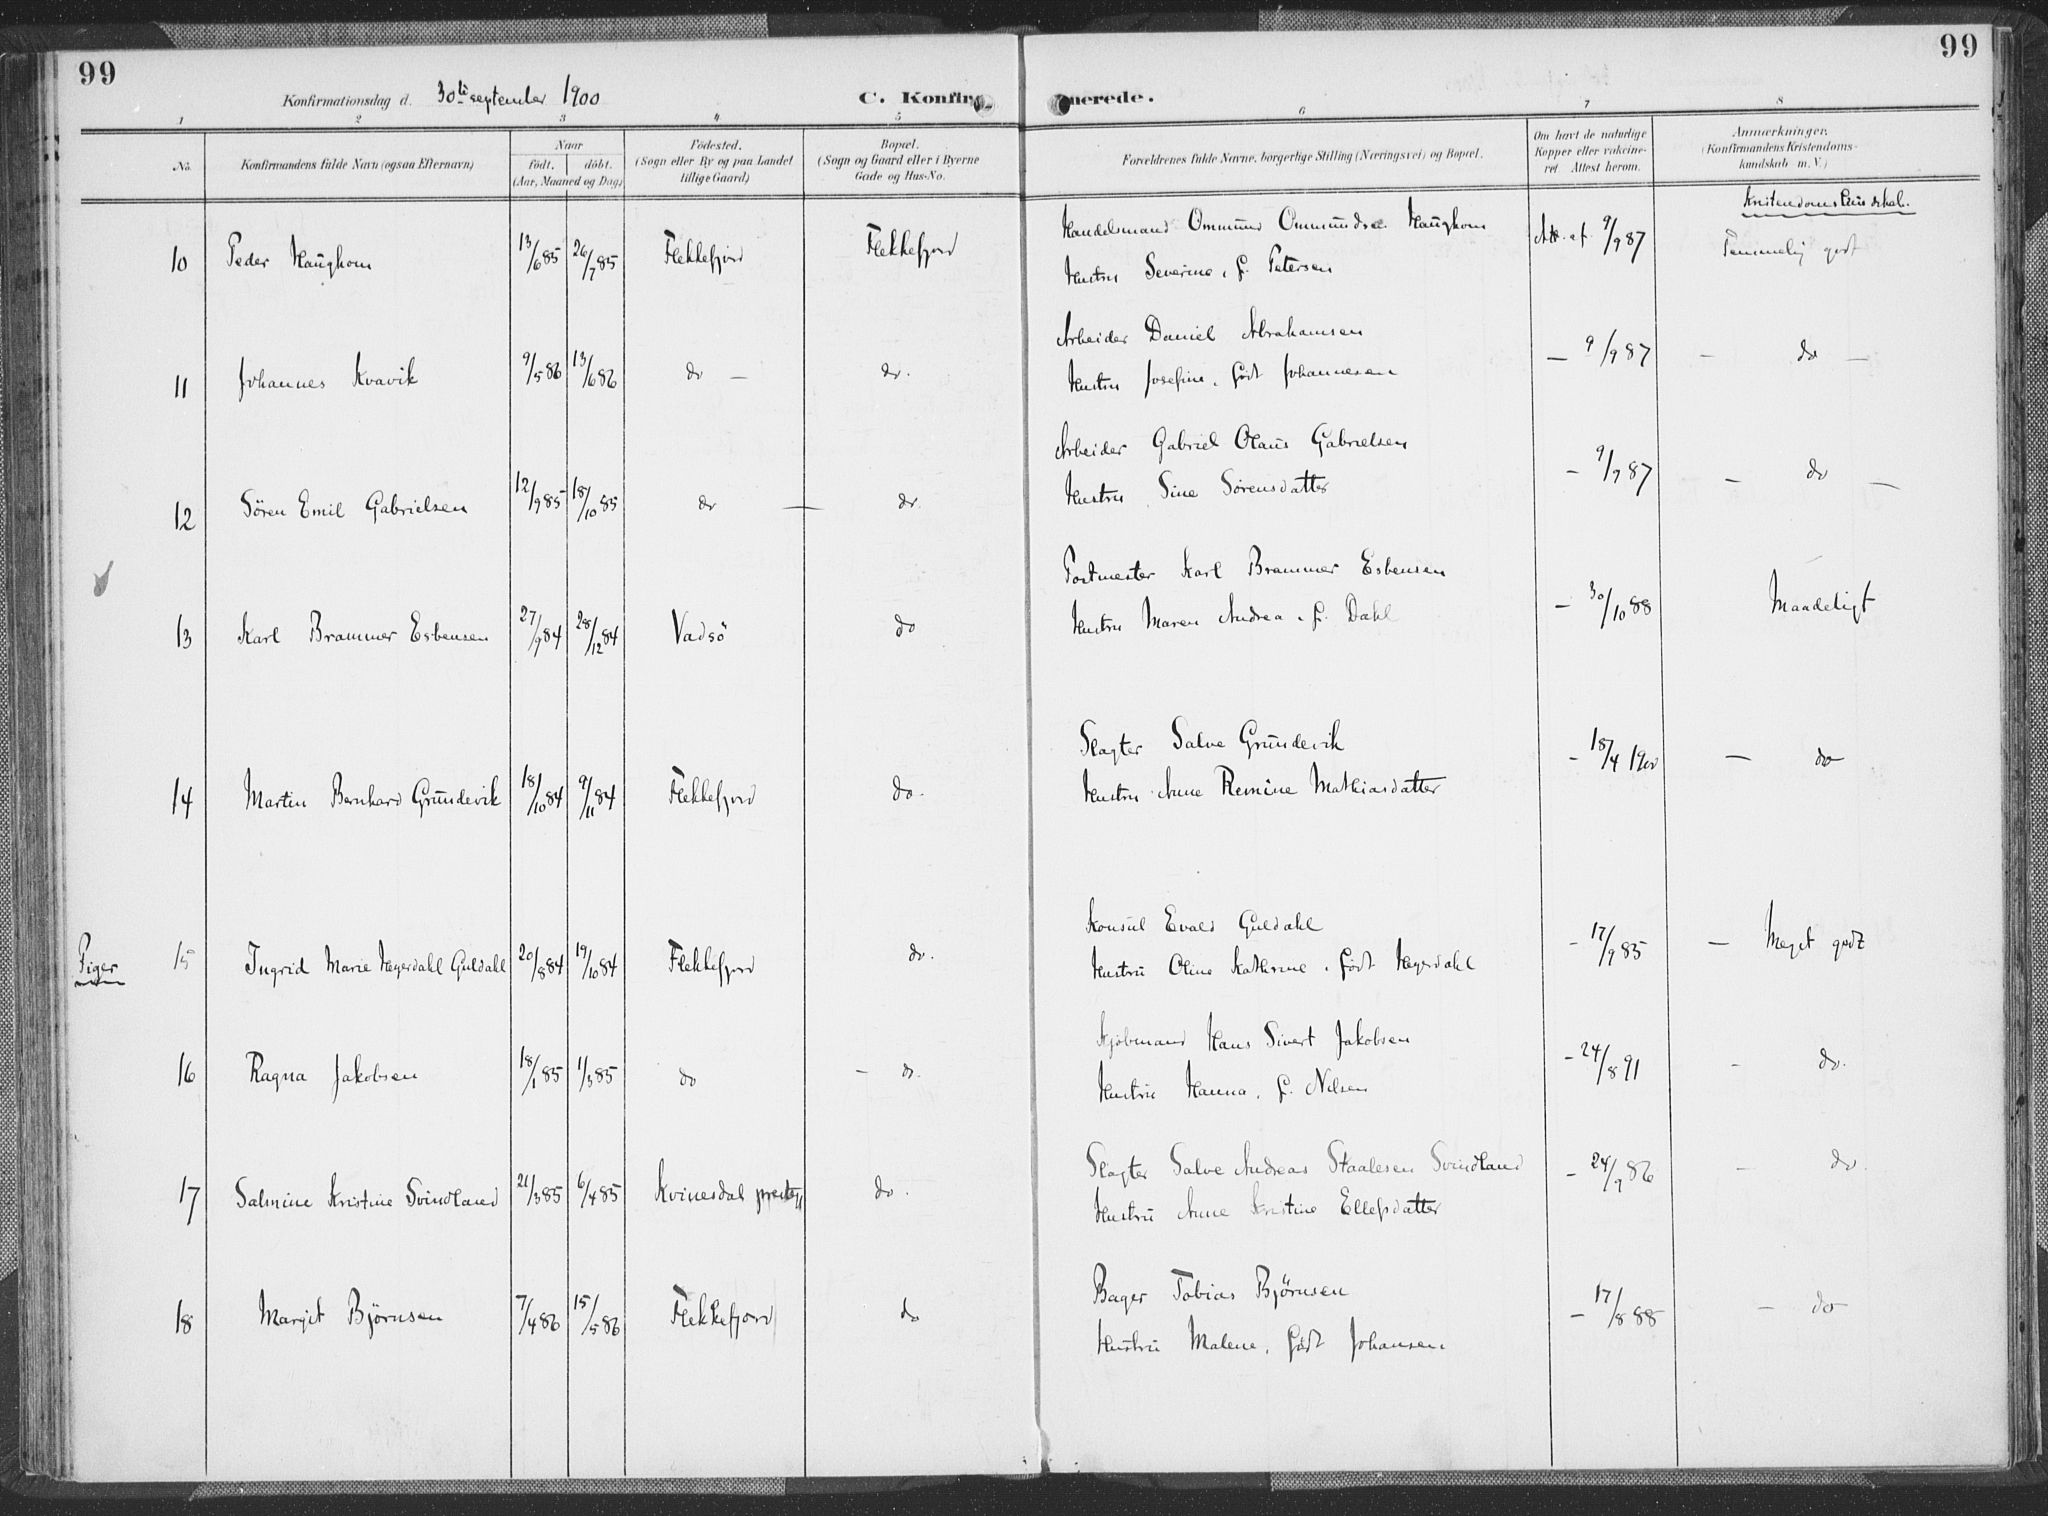 99
99
Konfirmationsdag d. 30te september 1900
C. Konfirmerede.
1 2 3 4 5 6 7 8
No. Konfirmandens fulde Navn (ogsaa Efternavn) Naar født. døbt. (Aar, Maaned og Dag) Fødested. (Sogn eller By og paa Landet tillige Gaard) Bopæl. (Sogn og Gaard eller i Byerne Gade og Hus-No. Forældrenes fulde Navne, borgerlige Stilling (Næringsvei) og Bopæl. Om havt de naturlige Kopper eller vakcineret Attest herom. Anmærkninger. (Konfirmandens Kristendomskundskab m. V.)
Kristendomskundskab.
Handelsmand Ommund Ommundsen Haughom
10 Peder Haughom 13/6 85 26/7 85 Flekkefjord Flekkefjord Att. af 9/9 87 Temmelig godt
Hustru Severine, f. Petersen
Arbeider Daniel Abrahamsen
11 Johannes Kvavik 9/5 86 13/6 86 do — do. — 9/9 87 — do —
Hustru Josefine, født Johannesen
Arbeider Gabriel Olaus Gabrielsen
12 Sören Emil Gabrielsen 12/9 85 18/10 85 do — do. — 9/9 87 — do —
Hustru Sine Sørensdatter
Postmester Karl Brammer Esbensen
13 Karl Brammer Esbensen 27/9 84 28/12 84 Vadsö do — 30/10 88 Maadeligt
Hustru Maren Andrea, f. Dahl
Slagter Salve Grundevik
14 Martin Bernhard Grundevik 18/10 84 9/11 84 Flekkefjord do. — 18/4 1900 — do
Hustru Anne Remine Mathiasdatter
Konsul Evald Guldahl
Piger 15 Ingrid Marie Heyerdahl Guldahl 20/8 84 19/10 84 Flekkefjord do. — 17/9 85 — Meget godt
Hustru Oline Kathrine, født Heyerdahl
Kjøbmand Hans Sivert Jakobsen
16 Ragna Jakobsen 18/1 85 1/3 85 do — do. — 24/8 91 — do.
Hustru Hanna, f. Nilsen
Slagter Salve Andreas Staalesen Svindland
17 Salmine Kristine Svindland 21/3 85 6/4 85 Kvinesdal do. — 24/9 86 — do.
Hustru Anne Kristine Ellefsdatter
Bager Tobias Björnsen
18 Margit Björnsen 7/4 86 15/5 86 Flekkefjord do — 17/8 88 — do
Hustru Malene, født Johansen